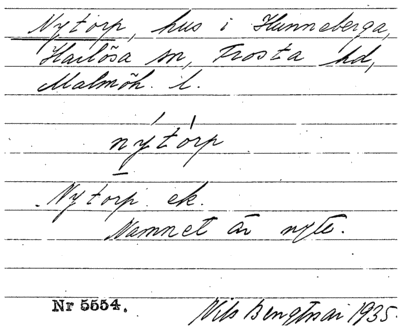 Nytorp, hus i Hunneberga,
Harlösa sn, Frosta hd,
Malmöh. l.
nýtórp
Nytorp ek.
Namnet är nytt.
Nr 5554. Nils Bengtsson 1935.